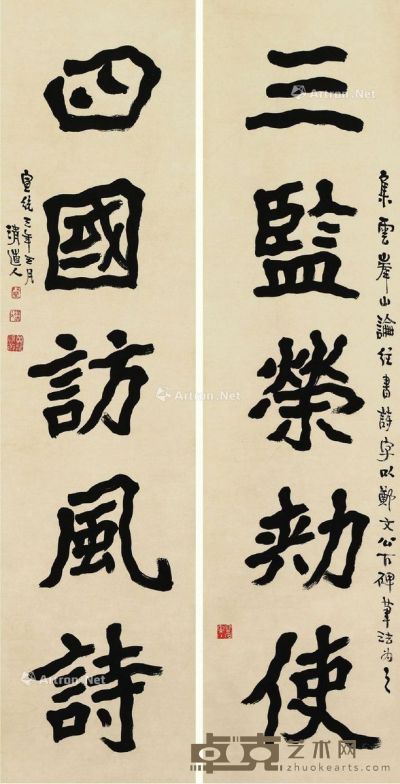 三監榮勅使
集雲峯山論經書詩字以鄭文公下碑筆法為之
四國訪風詩
宣統三年三月
清道人
Artron.Net
卓克艺术网
zhuokearts.com